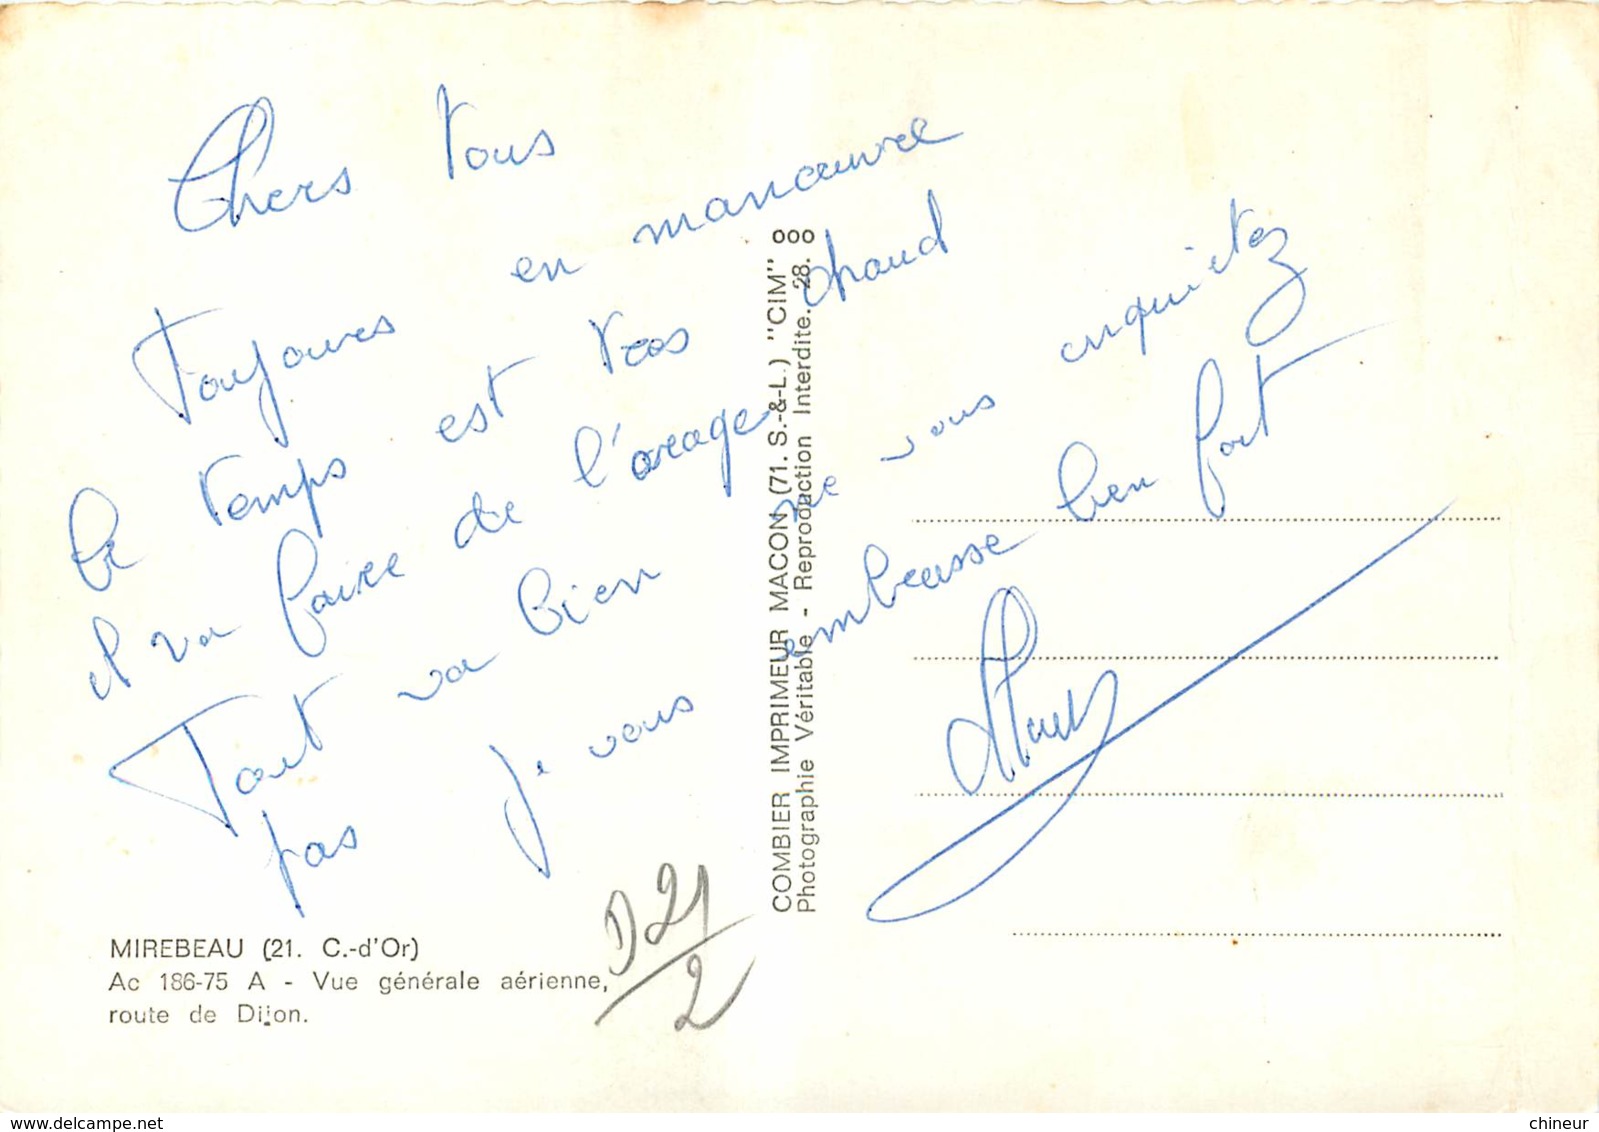 Chers Tous
Toujours en manœuvre
le temps est tres chaud
il va faire de l'orage
Tout va bien ne vous inquietez
pas je vous embrasse bien fort
MIREBEAU (21. C.-d'Or)
Ac 186-75 A - Vue générale aérienne,
route de Dijon.
D 21/2
COMBIER IMPRIMEUR MACON (71. S.-&-L.) "CIM" ooo
Photographie Véritable - Reproduction Interdite. 28.
MIREBEAU
chineur